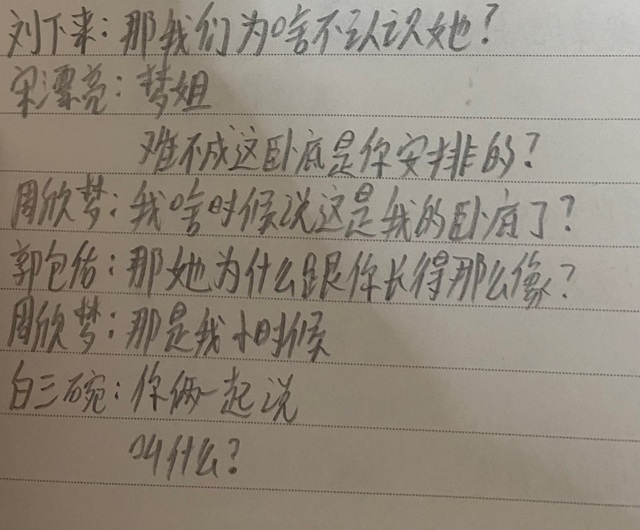 刘下来：那我们为啥不认识她？
宋漂亮：梦姐
难不成这卧底是你安排的？
周欣梦：我啥时候说这是我的卧底了？
郭包佑：那她为什么跟你长得那么像？
周欣梦：那是我小时候
白三碗：你俩一起说
叫什么？